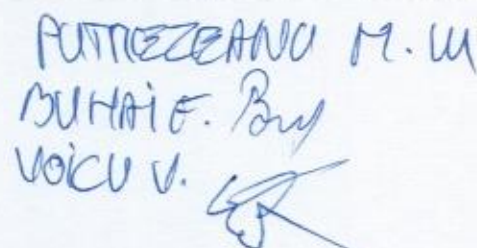 PUTREZEANU M.
BUHAI E.
VOICU V.